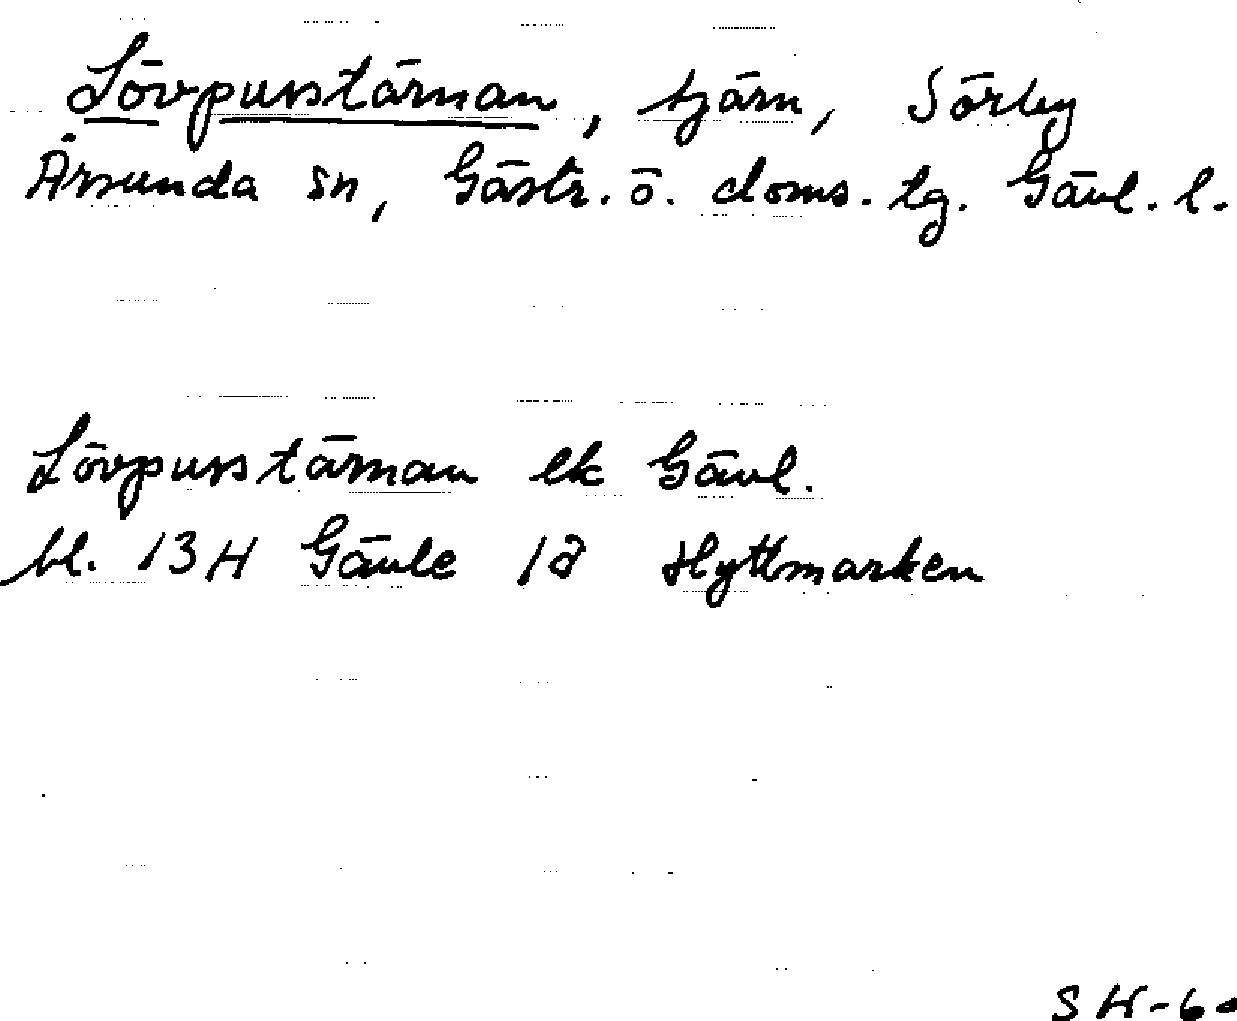 Lövpusstärnan, tjärn, Sörby
Årsunda sn, Gästr. ö. doms. tg. Gävl. l.
Lövpusstärnan ek Gävl.
bl. 13H Gävle 1a Hyttmarken
SH-60